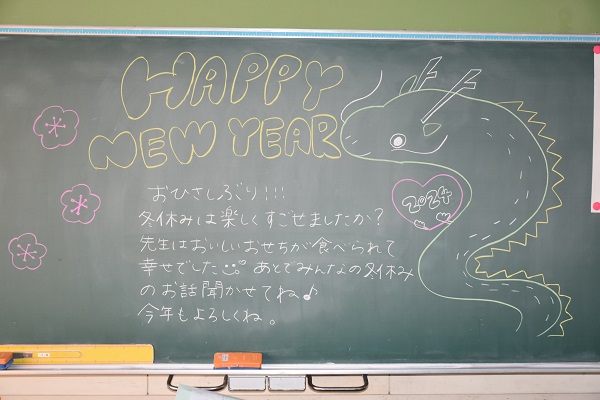 HAPPY
NEW YEAR
2024
おひさしぶり!!!
冬休みは楽しくすごせましたか?
先生はおいしいおせちが食べられて
幸せでした あとでみんなの冬休み
のお話聞かせてね♪
今年もよろしくね。